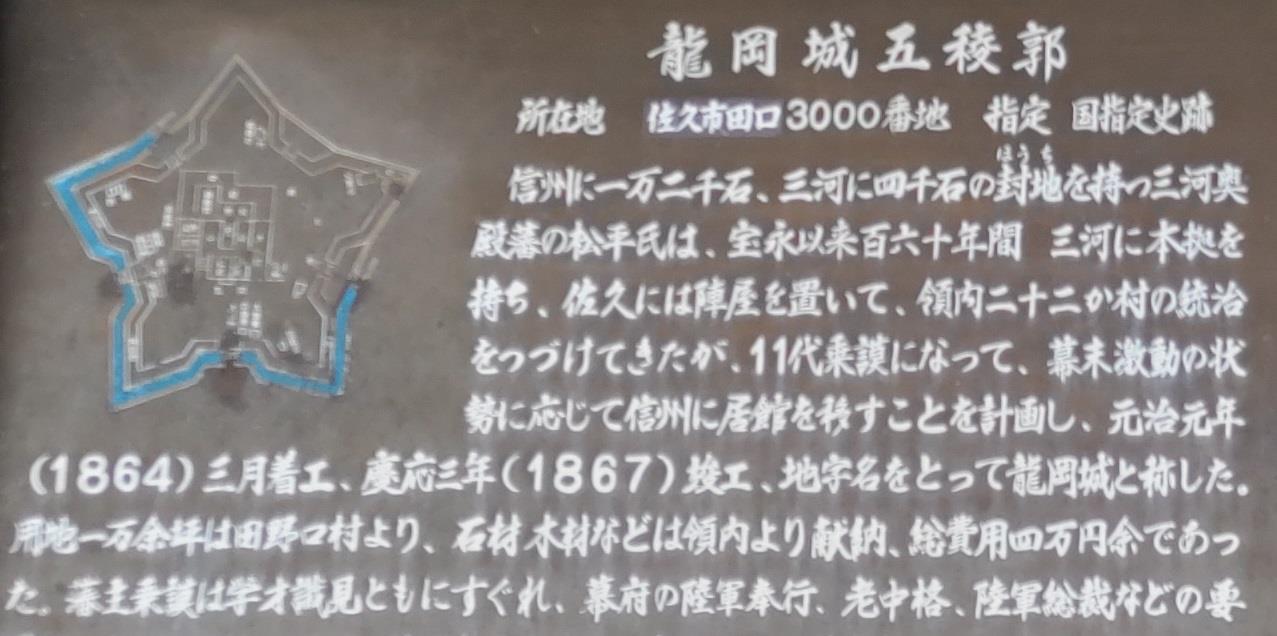 龍岡城五稜郭
所在地 佐久市田口3000番地 指定 国指定史跡
ほうち
信州に一万二千石、三河に四千石の封地を持つ三河奥
殿藩の松平氏は、宝永以来百六十年間 三河に本拠を
持ち、佐久には陣屋を置いて、領内二十二か村の統治
をつづけてきたが、11代乗謨になって、幕末激動の状
勢に応じて信州に居館を移すことを計画し、元治元年
(1864)三月着工、慶応三年(1867)竣工、地字名をとって龍岡城と称した。
用地一万余坪は田野口村より、石材木材などは領内より献納、総費用四万円余であっ
た。藩主乗謨は学才識見ともにすぐれ、幕府の陸軍奉行、老中格、陸軍総裁などの要